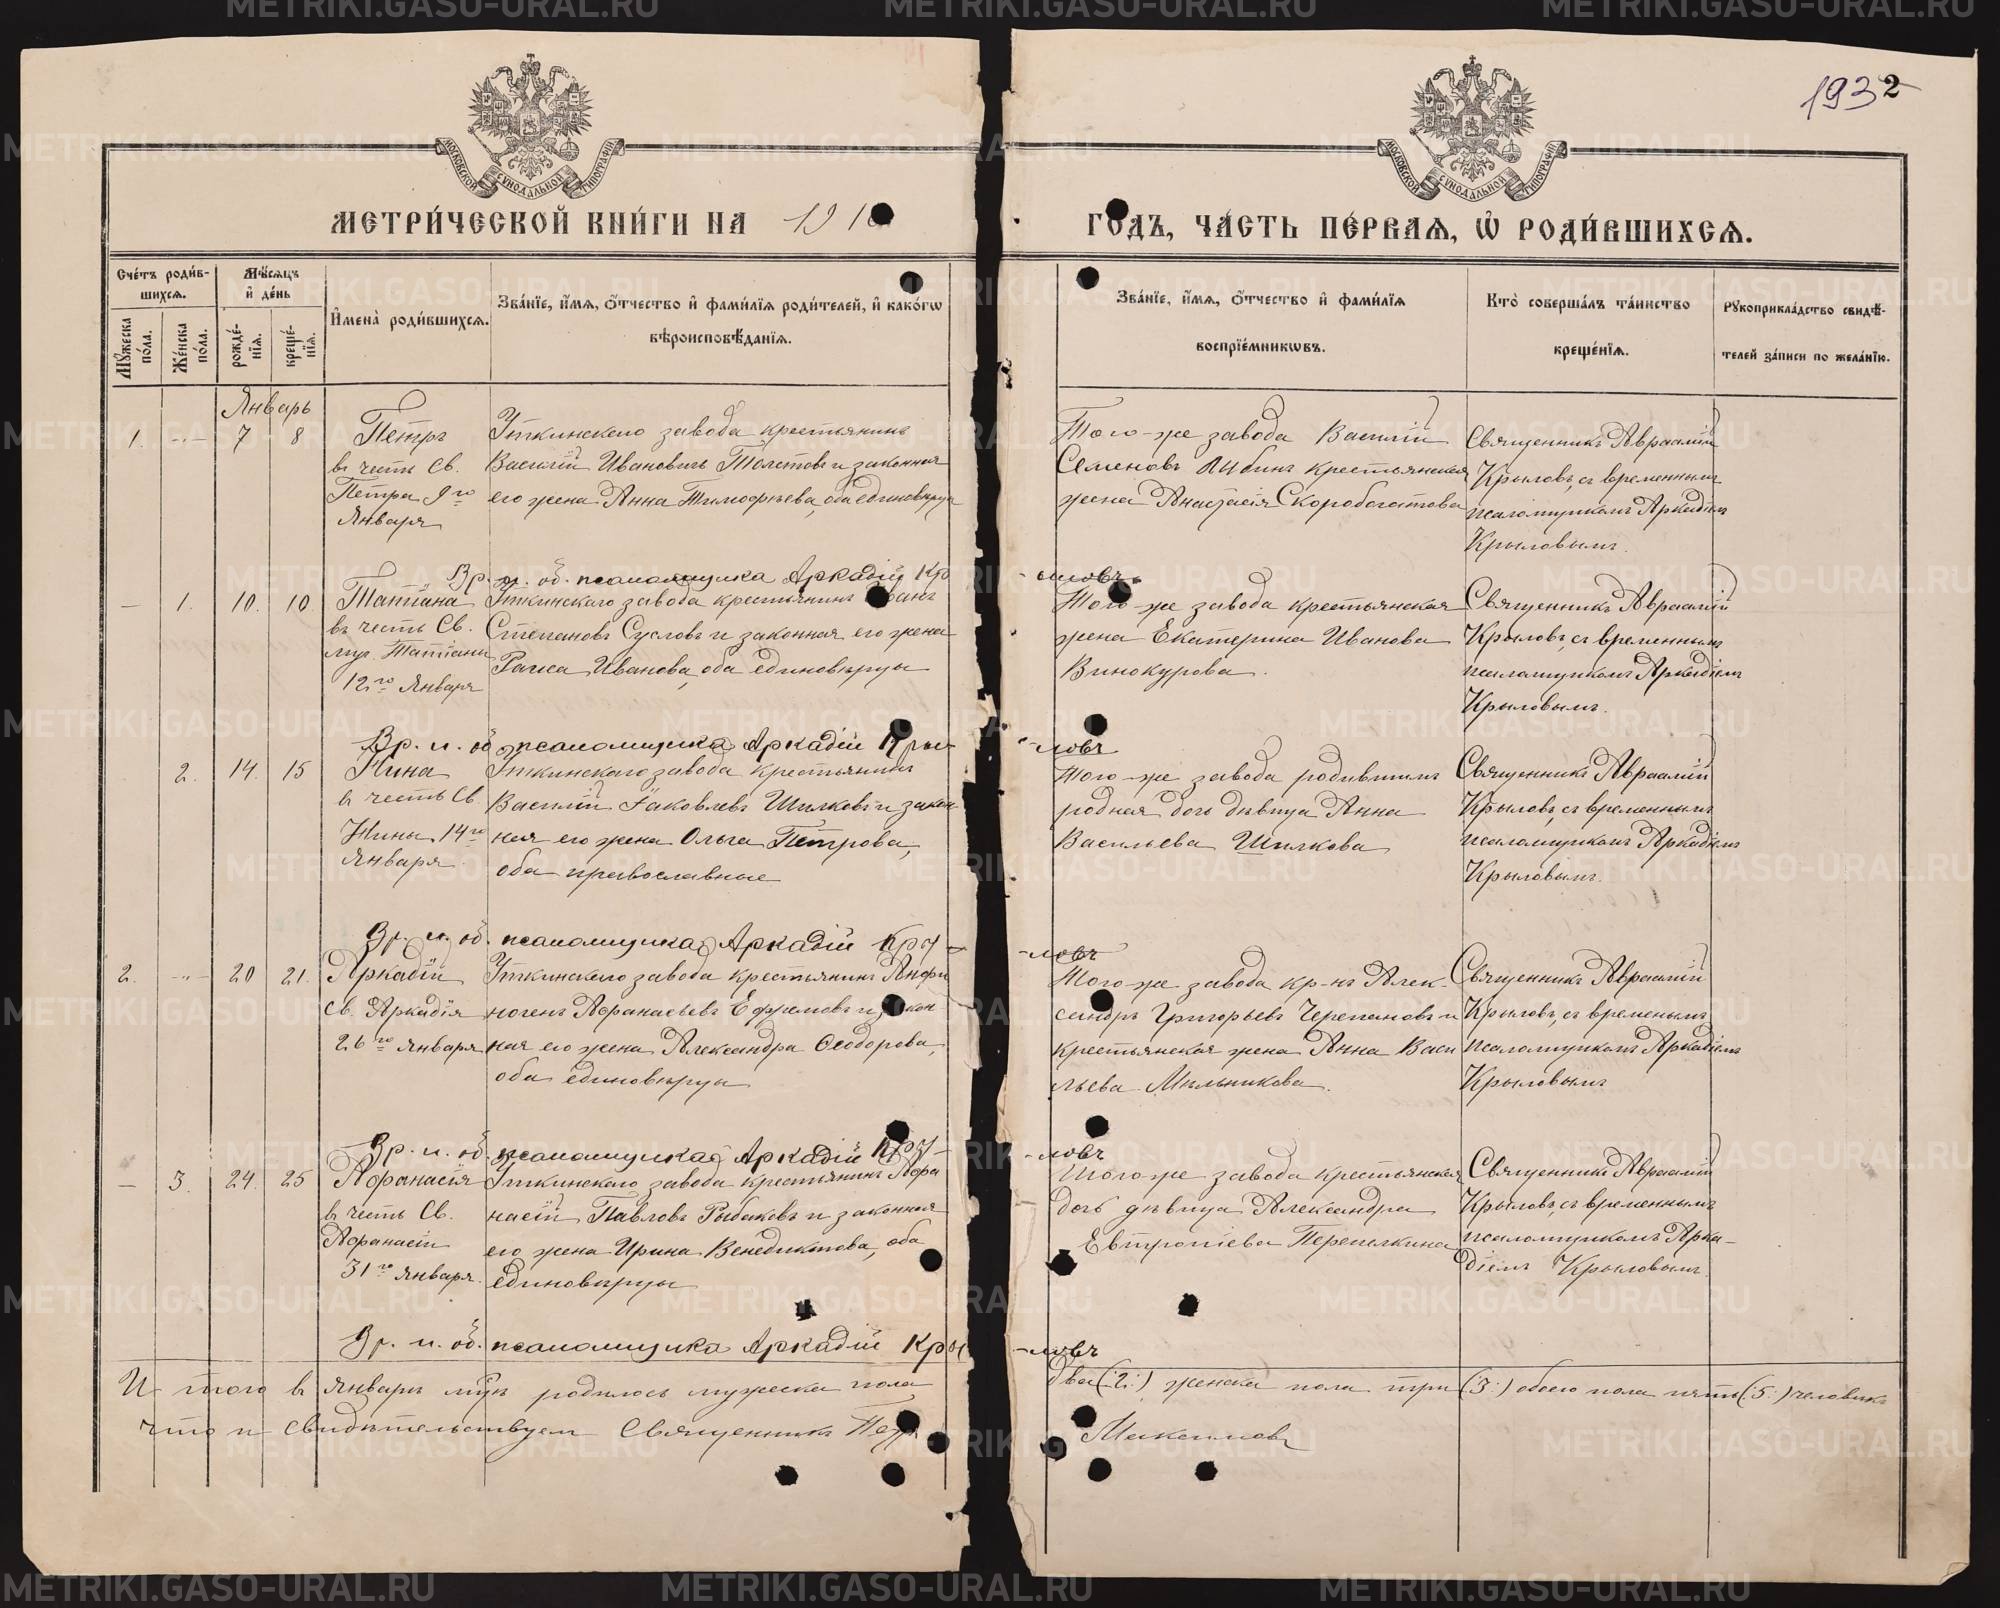 1932
МОСКОВСКОЙ СѴНОДАЛЬНОЙ ТИПОГРАФІИ
МОСКОВСКОЙ СѴНОДАЛЬНОЙ ТИПОГРАФІИ
МЕТРИ́ЧЕСКОЙ КНИ́ГИ НА 191
ГОДЪ, ЧА́СТЬ ПЕ́РВАѦ, Ѽ РОДИ́ВШИХСѦ.
Сче́тъ роди́вшихсѧ.
Мꙋ́жеска по́ла.
Же́нска по́ла.
Мѣ́сѧцъ и҆ де́нь
рожде́нїѧ.
креще́нїѧ.
И҆мена̀ роди́вшихсѧ.
Зва́нїе, и҆́мѧ, ѻ҆́тчество и҆ фами́лїѧ роди́телей, и҆ како́гѡ
вѣроисповѣ́данїѧ.
Зва́нїе, и҆́мѧ, ѻ҆́тчество и҆ фами́лїѧ
воспрїе́мникѡвъ.
Кто̀ соверша́лъ та́инство
креще́нїѧ.
Рꙋкоприкла́дство свидѣ́-
телей за́писи по жела́нїю.
Январь
1. -"- 7 8
Петръ
въ честь Св.
Петра 9го
Января
Уткинскаго завода крестьянинъ
Василій Ивановъ Толстовъ и законная
его жена Анна Тимофѣева, оба единовѣрцы
Того-же завода Василій
Семеновъ Либинъ крестьянская
жена Анастасія Скоробогатова
Священникъ Авраамій
Крыловъ, съ временнымъ
псаломщикомъ Аркадіемъ
Крыловымъ.
Вр. и. об. псаломщика Аркадій Крыловъ.
— 1. 10. 10
Татіана
въ честь Св.
муч. Татіаны
12го Января
Уткинскаго завода крестьянинъ
Степановъ Сусловъ и законная его жена
Раиса Иванова, оба единовѣрцы
Того-же завода крестьянская
жена Екатерина Иванова
Винокурова.
Священникъ Авраамій
Крыловъ, съ временнымъ
псаломщикомъ Аркадіемъ
Крыловымъ.
Вр. и. об. псаломщика Аркадій Крыловъ
2. 14. 15
Нина
въ честь Св.
Нины 14го
Января
Уткинскаго завода крестьянинъ
Василій Яковлевъ Шилковъ и закон-
ная его жена Ольга Петрова,
оба православные
Того-же завода родившимъ
родная дочь дѣвица Анна
Васильева Шилкова
Священникъ Авраамій
Крыловъ, съ временнымъ
псаломщикомъ Аркадіемъ
Крыловымъ.
Вр. и. об. псаломщика Аркадій Кры-ловъ
2. -"- 20 21.
Аркадій
Св. Аркадія
26го Января
Уткинскаго завода крестьянинъ Анфи
ногенъ Афанасьевъ Ефремовъ и закон-
ная его жена Александра Ѳеодорова,
оба единовѣрцы
Того-же завода кр-нъ Алек-
сандръ Григорьевъ Черепановъ и
крестьянская жена Анна Васи
льева Мильникова.
Священникъ Авраамій
Крыловъ, съ временнымъ
псаломщикомъ Аркадіемъ
Крыловымъ
Вр. и. об. псаломщика Аркадій Кры-ловъ
— 3. 24. 25
Афанасія
въ честь Св.
Афанасіи
31го Января.
Уткинскаго завода крестьянинъ Афа
насій Павловъ Рыбаковъ и законная
его жена Ирина Венедиктова, оба
единовѣрцы
Того-же завода крестьянская
дочь дѣвица Александра
Евтропіева Перепелкина
Священникъ Авраамій
Крыловъ, съ временнымъ
псаломщикомъ Арка-
діемъ Крыловымъ.
Вр. и. об. псаломщика Аркадій Кры-ловъ
Итого въ Январѣ м-цѣ родилось мужеска пола два (:2:) женска пола три (:3:) обоего пола пять (:5:) человѣкъ
что и свидѣтельствуетъ Священникъ Петръ Максимовъ
METRIKI.GASO-URAL.RU